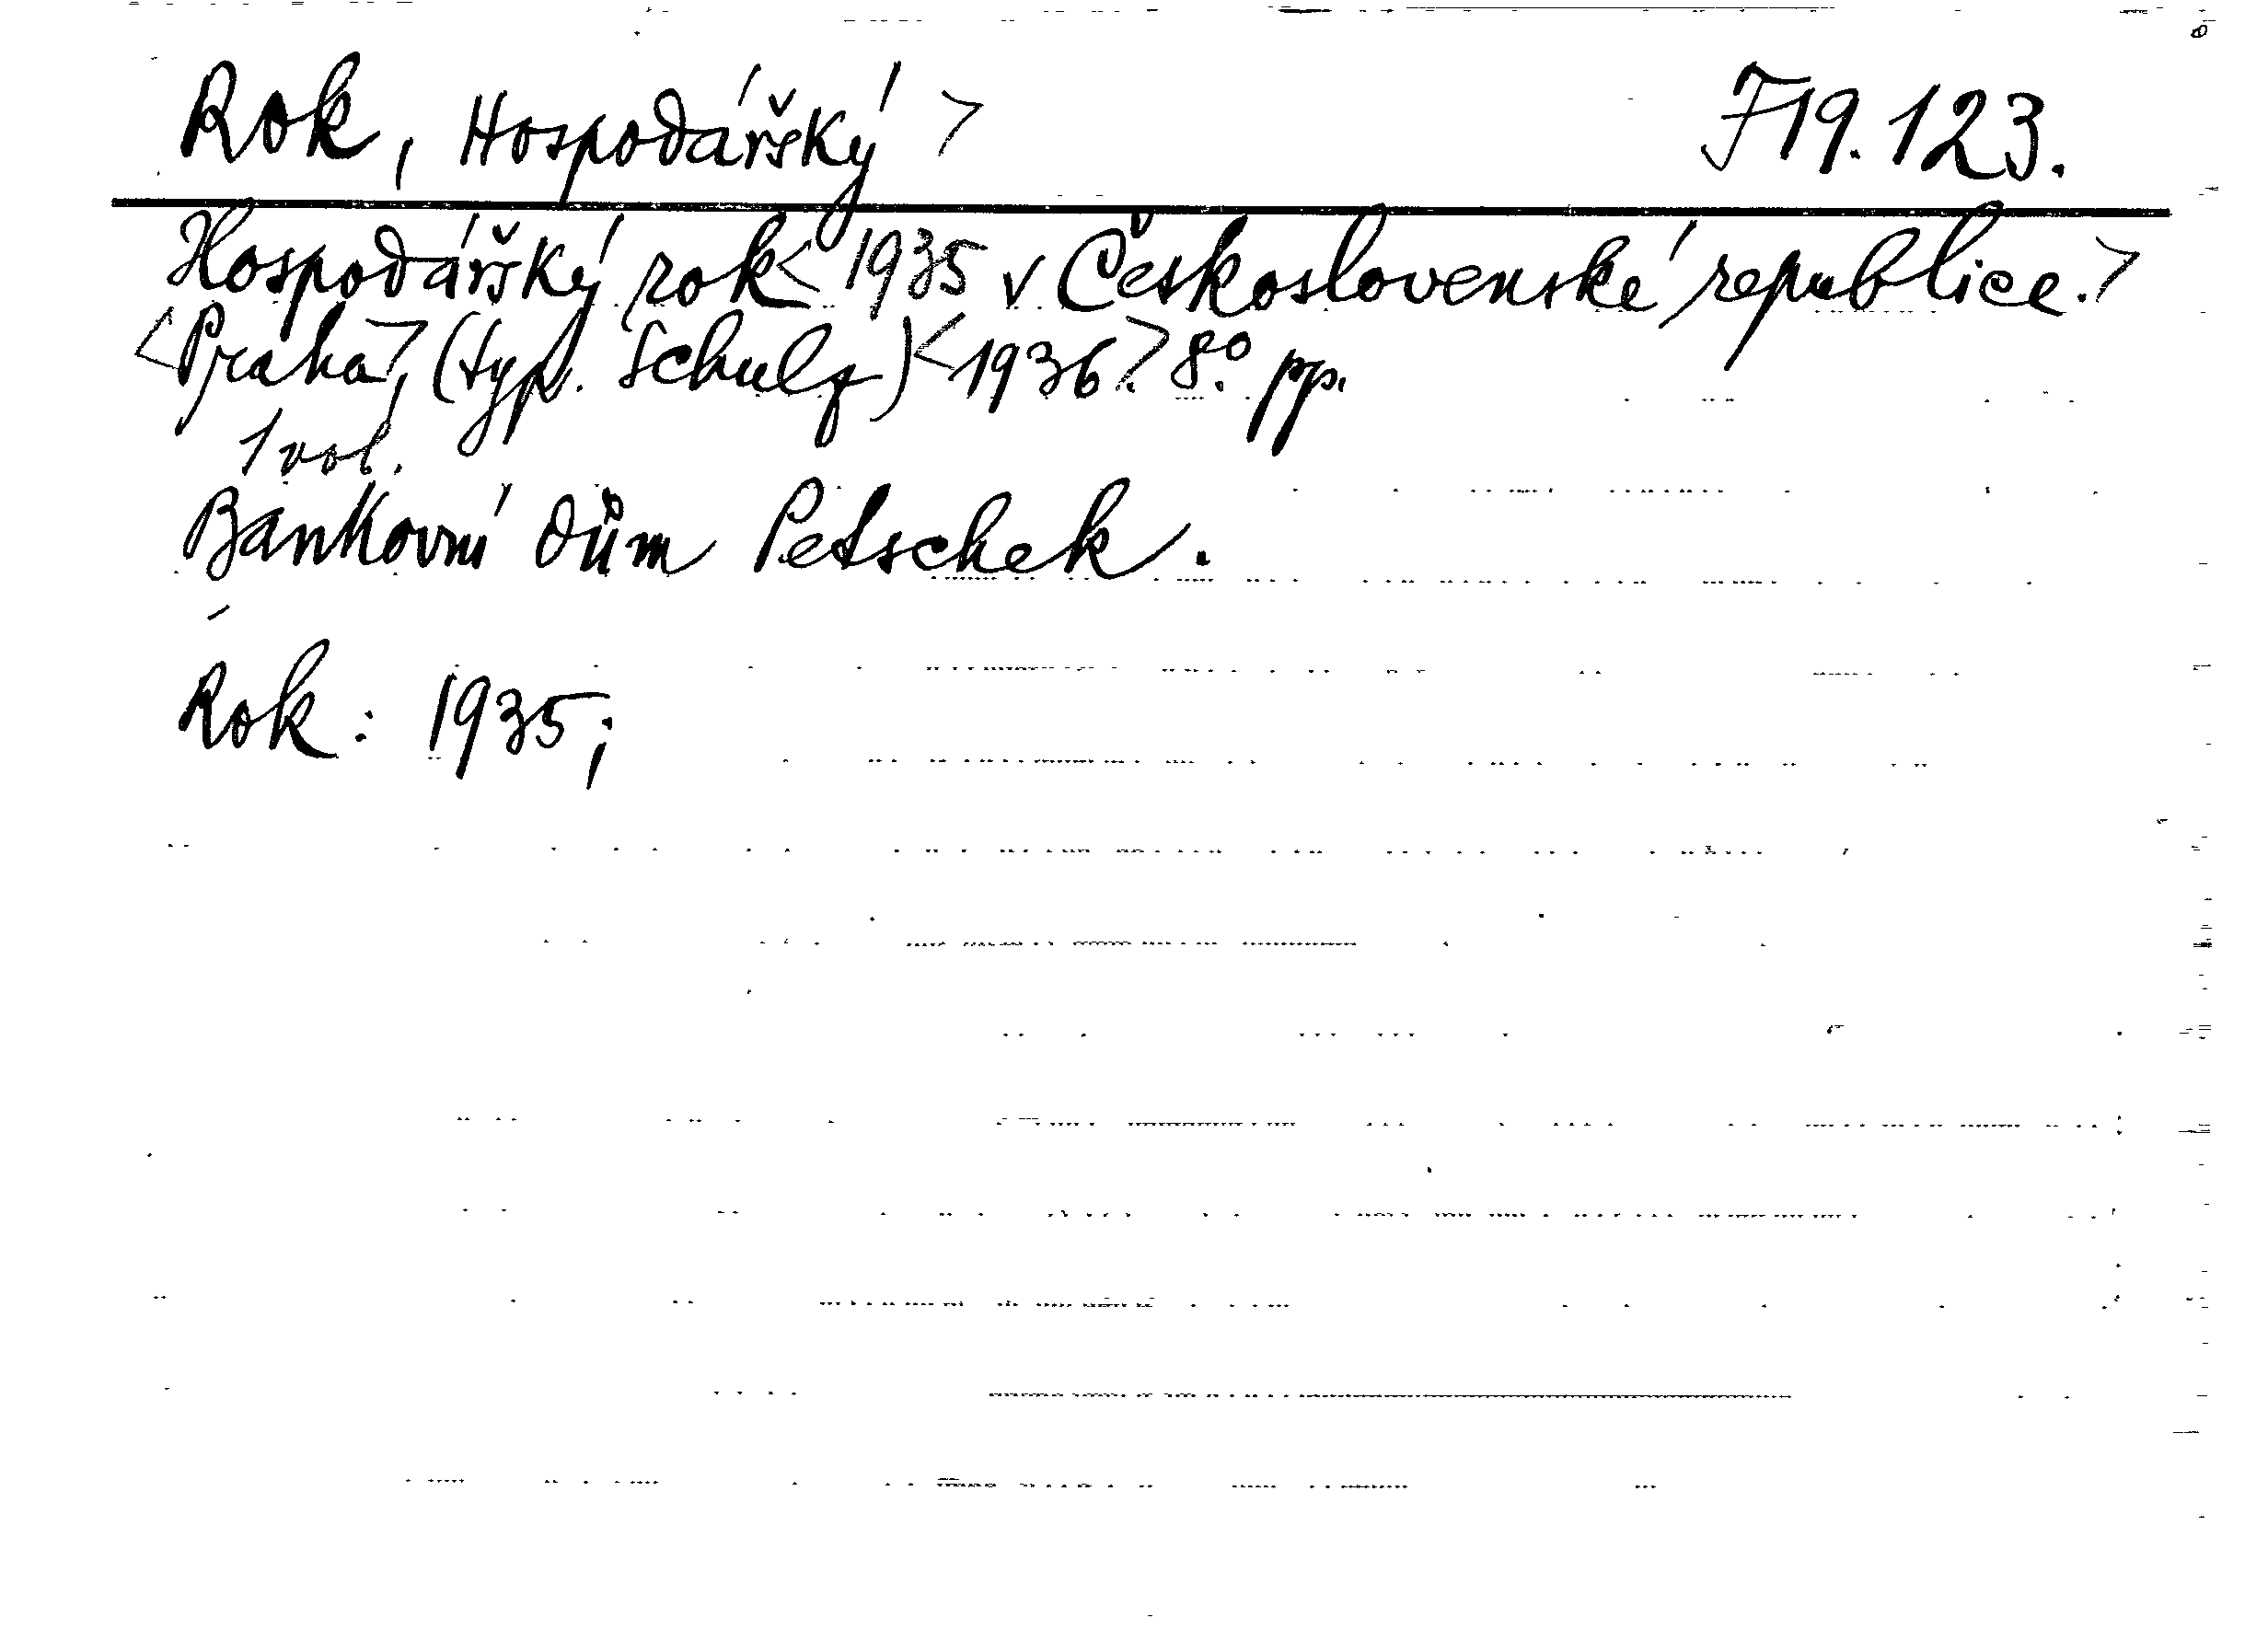 Rok, Hospodářský > J19.123.
Hospodářský rok < 1935 v Československé republice.>
<Praha>, (typ. Schulz) <1936.> 8.° pp.
1 vol.
Bankovní dům Petschek.
Rok: 1935;